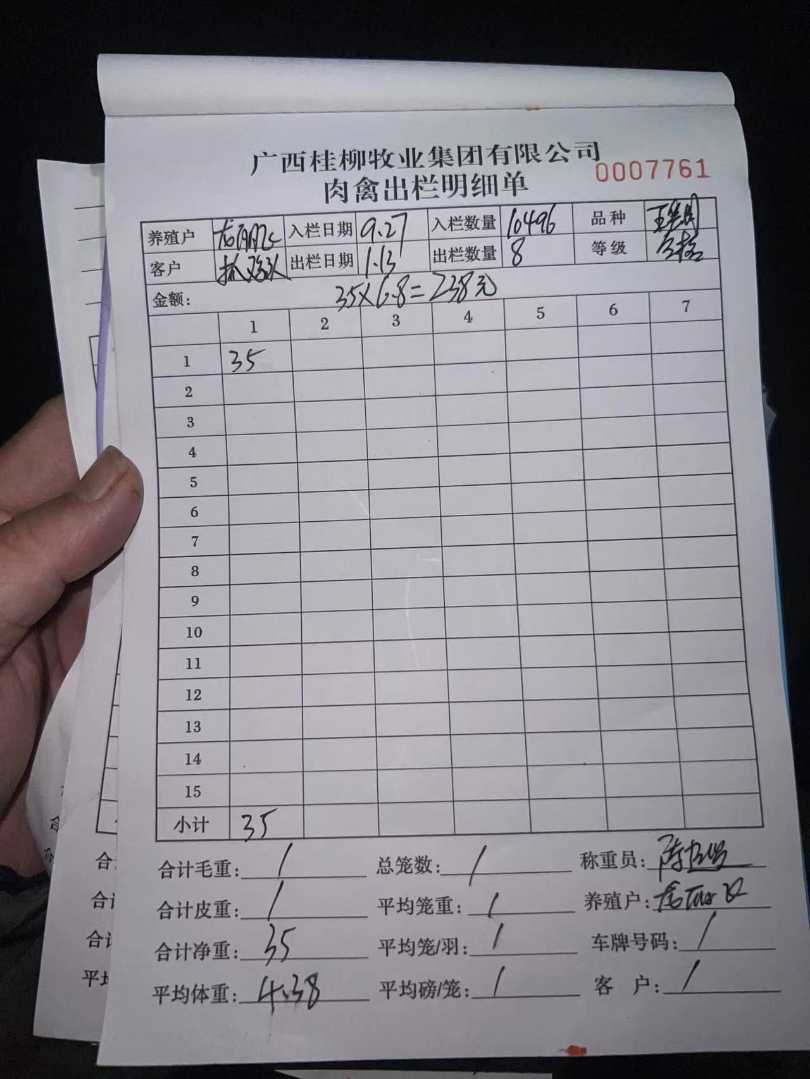 广西桂柳牧业集团有限公司
肉禽出栏明细单 0007761
养殖户 入栏日期 9.27 入栏数量 10496 品种
客户 抓鸡队 出栏日期 1.13 出栏数量 8 等级 合格
金额: 35×6.8=238元
1 2 3 4 5 6 7
1 35
2
3
4
5
6
7
8
9
10
11
12
13
14
15
小计 35
合计毛重: / 总笼数: / 称重员:
合计皮重: / 平均笼重: / 养殖户:
合计净重: 35 平均笼/羽: / 车牌号码: /
平均体重: 4.38 平均磅/笼: / 客 户: /
合计
合计
合计
平均